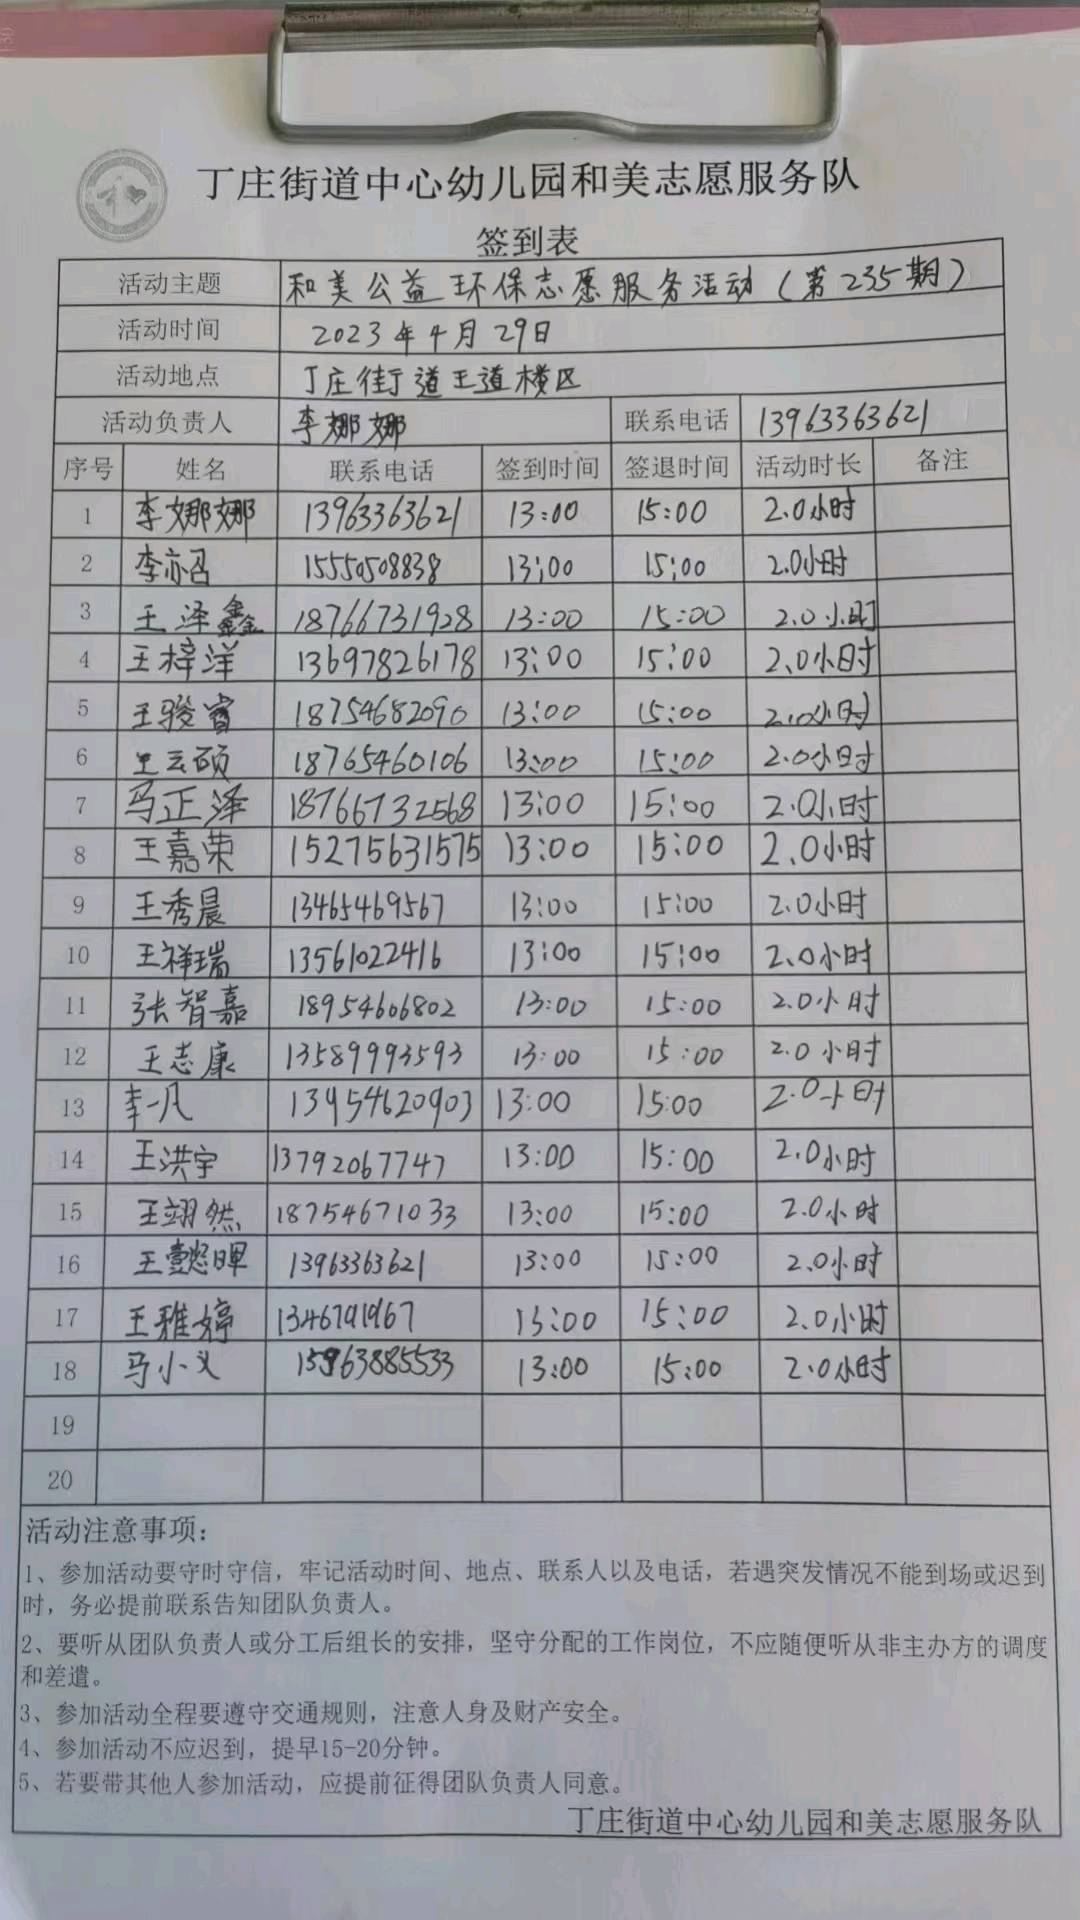 丁庄街道中心幼儿园和美志愿服务队
签到表
活动主题 和美公益环保志愿服务活动（第235期）
活动时间 2023年4月29日
活动地点 丁庄街道王道楼区
活动负责人 李娜娜 联系电话 13963363621
序号 姓名 联系电话 签到时间 签退时间 活动时长 备注
1 李娜娜 13963363621 13:00 15:00 2.0小时
2 李亦召 15550508838 13:00 15:00 2.0小时
3 王泽鑫 18766731928 13:00 15:00 2.0小时
4 王梓洋 13697826178 13:00 15:00 2.0小时
5 王骏睿 18754682090 13:00 15:00 2.0小时
6 王云硕 18765460106 13:00 15:00 2.0小时
7 马正泽 18766732568 13:00 15:00 2.0小时
8 王嘉荣 15275631575 13:00 15:00 2.0小时
9 王秀晨 13465469567 13:00 15:00 2.0小时
10 王祥瑞 13561022416 13:00 15:00 2.0小时
11 张智嘉 18954606802 13:00 15:00 2.0小时
12 王志康 13589993593 13:00 15:00 2.0小时
13 李一凡 13954620903 13:00 15:00 2.0小时
14 王洪宇 13792067747 13:00 15:00 2.0小时
15 王翊然 18754671033 13:00 15:00 2.0小时
16 王懿暉 13963363621 13:00 15:00 2.0小时
17 王雅婷 13:00 15:00 2.0小时
18 马小义 15963885533 13:00 15:00 2.0小时
19
20
活动注意事项：
1、参加活动要守时守信，牢记活动时间、地点、联系人以及电话，若遇突发情况不能到场或迟到
时，务必提前联系告知团队负责人。
2、要听从团队负责人或分工后组长的安排，坚守分配的工作岗位，不应随便听从非主办方的调度
和差遣。
3、参加活动全程要遵守交通规则，注意人身及财产安全。
4、参加活动不应迟到，提早15-20分钟。
5、若要带其他人参加活动，应提前征得团队负责人同意。
丁庄街道中心幼儿园和美志愿服务队